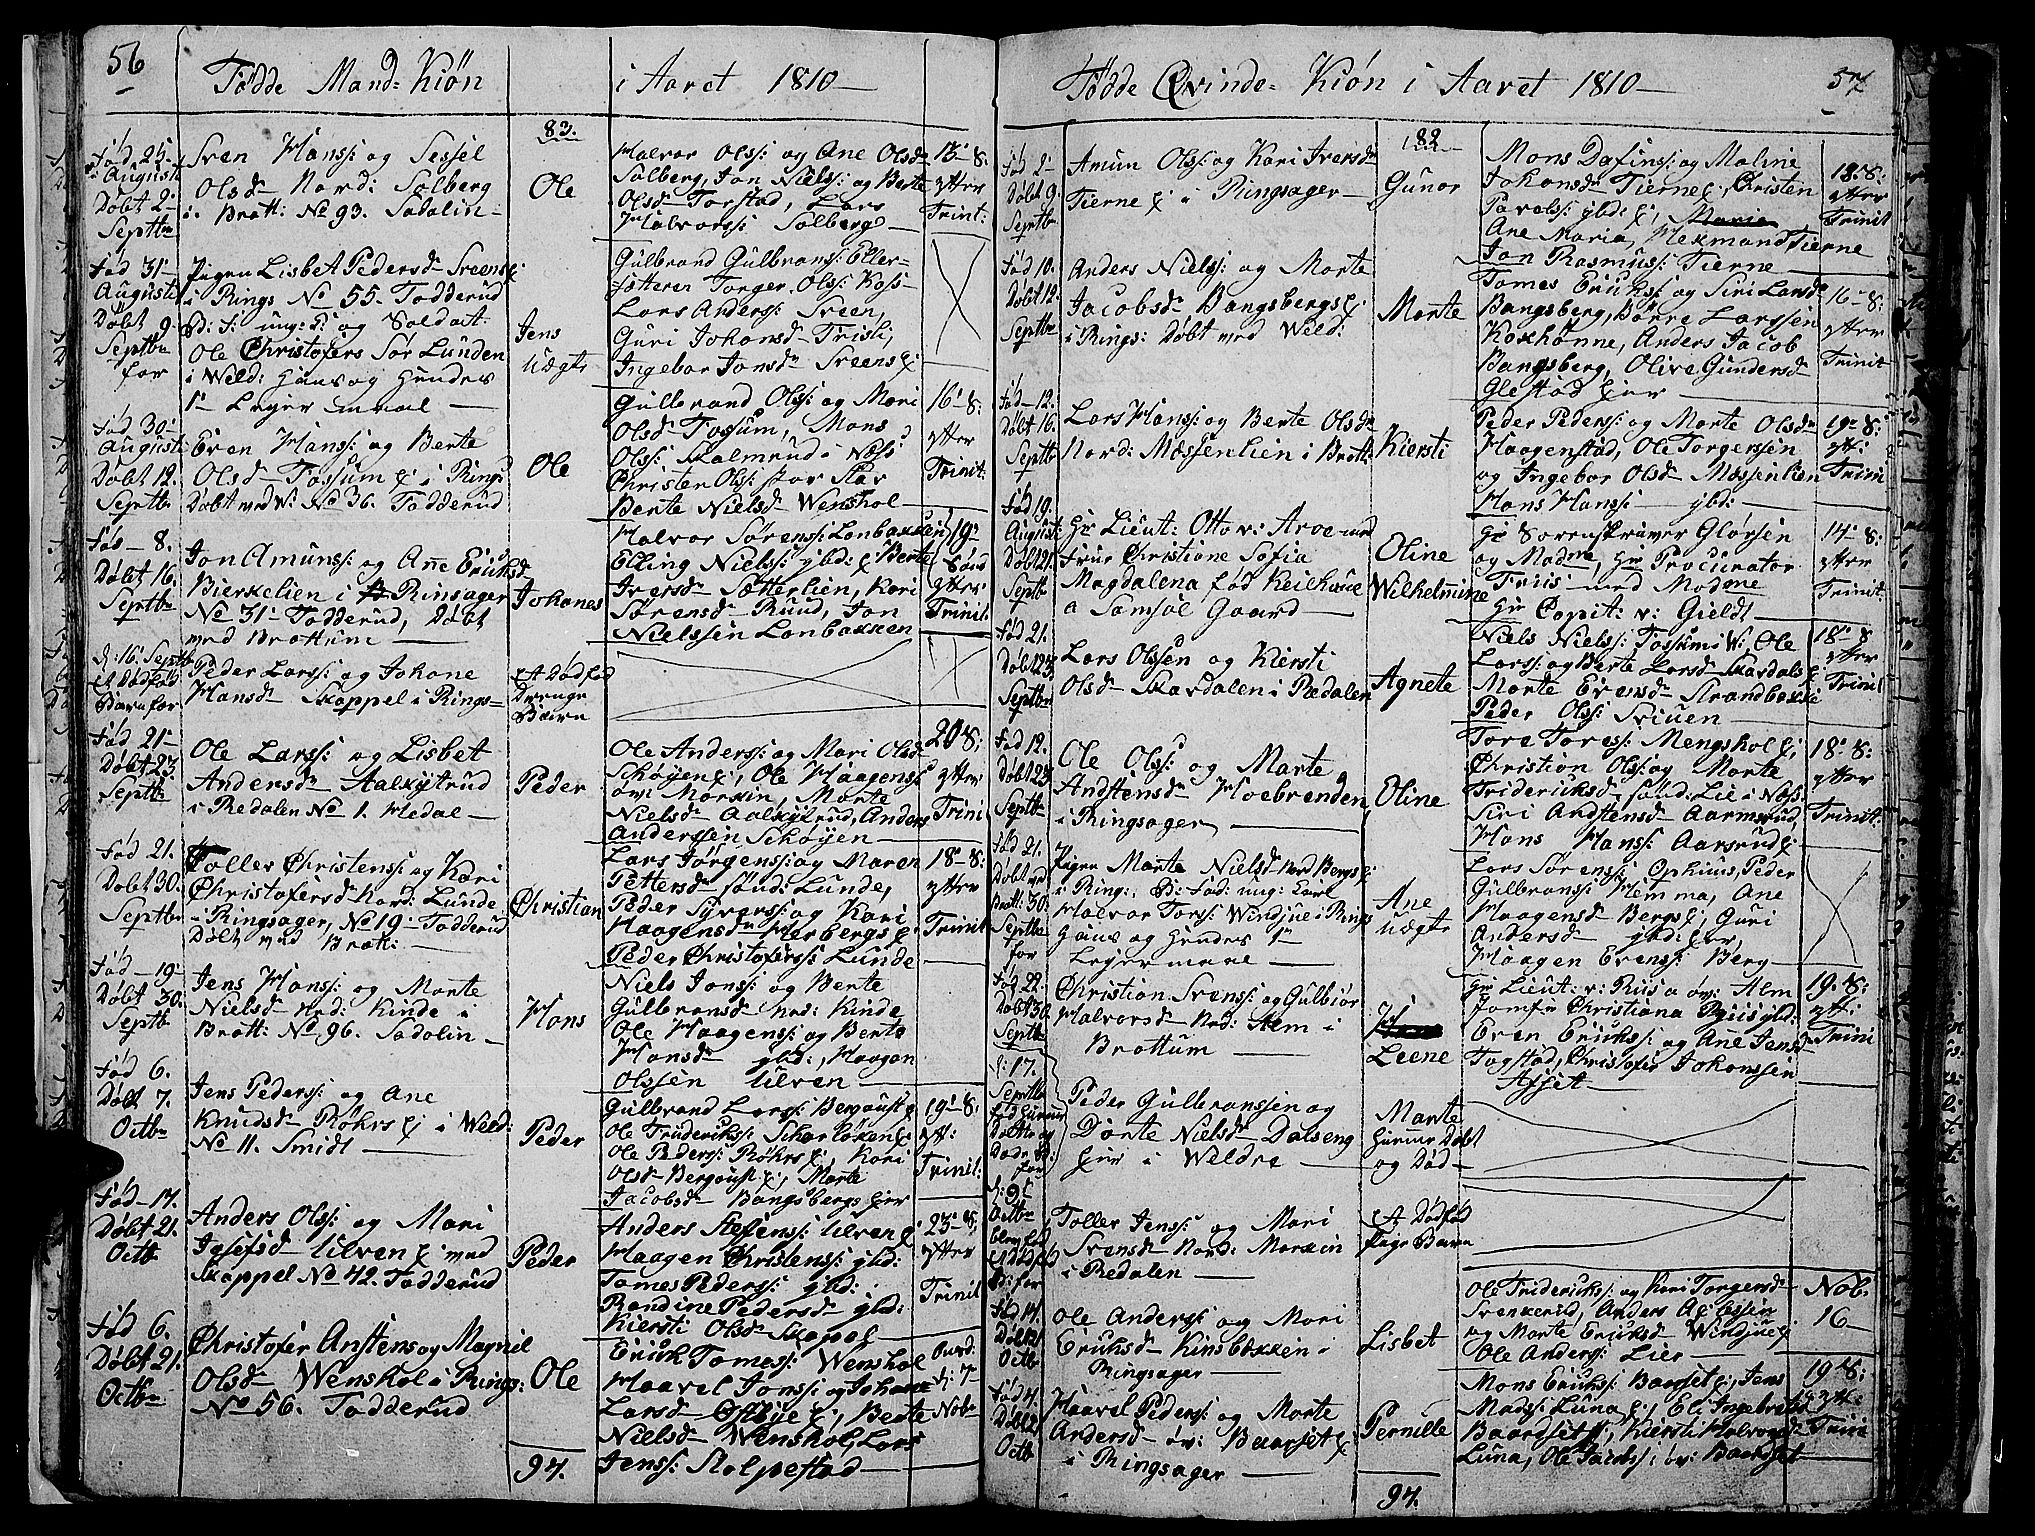 56
Fødde Mand-Kiøn i Aaret 1810
83.
Fød 25.
Augusti
Døbt 2.
Septbr
Sven Hanss: og Sessel
Olsd Nord: Solberg
i Brøtt: No 93. Sadolin
Ole
Halvor Olss: og Ane Olsd
Solberg, Jon Nielss: og Berte
Olsd Torstad, Lars
Halvorss: Solberg
13-8:
ytter
Trint:
Fød 31
Augusti
Døbt 9.
Septbr
for
Pigen Lisbet Pedersd Sveens
i Rings No 55. Todderud
B: F: ung: K: og Soldat
Ole Christofers Sør Lunden
i Weld: Hans og Hendes
1 Leyermaal
Jens
uægte
Gulbrand Gulbrans: Eller-
Torger Olss: Koss
Lars Anderss: Sveen,
Guri Johansd Trisli,
Ingebor Jonsd Sveens
Fød 30.
Augusti
Døbt 12.
Septbr
Even Hanss: og Berte
Olsd Fossum i Rings
Døbt ved W: No 36. Todderud
Ole
Gulbrand Olss: og Mari
Olsd Fossum, Mons
Olss: Skalmrud i Næss
Christen Olss: stor Skar
Berte Nielsd Wenshol
16-8:
ytter
Trinit:
Fød 8.
Døbt 16.
Septbr
Jon Amunss: og Anne Eriksd
Bierkelien i Rinsager
No 31 Todderud, Døbt
ved Brøttum
Johanes
Halvor Sørenss: Lonbakken
Elling Nielss: ybd: Berte
Iversd Sætterlien, Kari
Sørensd Ruud, Jon
Nielssen Lonbakken
19
ytter
Trinit:
d: 16 Septbr
et Dødfød
Barn for
Peder Larss: og Johane
Hansd Skappel i Rings
et Dødfød
Drenge
Barn
Fød 21
Døbt 23.
Septbr
Ole Larss: og Lisbet
Andersd Aalkytrud
i Redalen No 1. Medal
Peder
Ole Anderss: og Mari Olsd
Schøyen, Ole Haagenss
øv: Morkin, Marte
Nielsd Aalkytrud, Anders
Anderssen Schøyen
20-8:
ytter
Trini
Fød 21.
Døbt 30.
Septbr
Toller Christenss: og Kari
Christofersd Nord: Lunde
i Ringsager, No 19 Todderud
Døbt ved Brøtt:
Christian
Lars Jørgenss: og Maren
Pettersd sønd: Lunde,
Peder Syverss: og Kari
Haagensd Herbergs
Peder Christoferss: Lunde
18-8:
ytter
Trinit
Fød 19
Døbt 30.
Septbr
Jens Hanss: og Marte
Nielsd Nrd: Kinde i
Brøtt: No 96. Sadolin
Hans
Niels Jonss: og Berte
Gulbransd Nrd: Kinde
Ole Haagenss: og Berte
Hansd ybd:, Haagen
Olssen Ulven
Fød 6.
Døbt 7.
Octbr
Jens Pederss: og Ane
Knudsd Røhrs i Weld:
No 11. Smidt
Peder
Gulbrand Larss: Bergaust
Ole Frideriksss: Scharløken
Ole Pederss: Røhrs, Kari
Olsd Bergaust, Marte
Jacobsd Bangsbergs
19-8:
ytt:
Trinit:
Fød 17.
Døbt 21.
Octb
Anders Olss: og Mari
Josefsd Ulven ved
Skappel No 42. Todderud
Peder
Anders Steffenss: Ulven
Haagen Christenss: ybd:
Tomes Pederss: ybd:
Randine Pedersd ybd:
Kiersti Olsd Skappel
23-8:
ytter
Trinit
Fød 6.
Døbt 21.
Octbr
Christofer Anstens og Magnil
Olsd Wenshol i Rings:
No 56. Todderud
Ole
Erick Tomess: Wenshol
Haavel Jonss: og Johane
Larsd Østbye, Berte
Nielsd Wenshol, Lars
Jenss: Stolpestad
d: 7
Nobr
97.
57
Fødde Qvinde-Kiøn i Aaret 1810
89
Fød 2
Døbt 9.
Septbr
Amun Olss: og Kari Iversd
Tierne i Ringsager
Gunor
Mons Dafinss: og Maline
Johansd Tierne, Christen
Pavelss: ybd:, Maria
Ane Maria, Hekmand Tierne
Jon Rasmuss: Tierne
18-8:
ytter
Trinit
Fød 10.
Døbt 12.
Septbr
Anders Nielss: og Marte
Jacobsd Bangsbergs
i Rings: Døbt ved Weld:
Marte
Tomes Erikss: og Siri Larsd
Bangsberg, Børre Larssen
Koxhønne, Anders Jacob
Bangsberg, Olive Gundersd
Glestad
16-8:
ytter
Trinit
Fød 12.
Døbt 16.
Septbr
Lars Hanss: og Berte Olsd
Nord: Messenlien i Brøtt:
Kiersti
Peder Pederss: og Marte Olsd
Haagenstad, Ole Torgerssen
og Ingebor Olsd Messenlien
Hans Hanss: ybd:
19-8:
ytt:
Trinit
Fød 19.
August:
Døbt 21.
Septbr
Hr Lieut: Otto v: Aroe med
Frue Christiane Sofia
Magdalena fød Keilhaue
a Samsøl Gaard
Oline
Wilhelmine
Hr Sorenskriver Glørsen
og Madme, Hr Procurator
Friis med Madme
Hr Capit: v: Gieldt
14-8:
ytter
Trinit:
Fød 21.
Døbt 23.
Septbr
Lars Olssen og Kiersti
Olsd Skardalen i Redalen
Agnete
Niels Nielss: Fosskin i W:, Ole
Larss: og Berte Larsd Skardals
Marte Evensd Strandbakke
Peder Olss: Sviuen
18-8
ytter
Trinit
Fød 12.
Døbt 23.
Septbr
Ole Olss: og Marte
Andstensd Hoebrenden
i Ringsager
Oline
Tore Toress: Mengshol,
Christian Olss: og Marte
Frideriksd sønd: Lie i Næss:
Siri Andstensd Aarmsrud,
Hans Hanss: Aarsrud
18-8:
ytter
Trinit:
Fød 21.
Døbt ved
Brøtt: 30.
Septbr
for
Pigen Marte Nielsd Nrd Bergs
i Ring:, B: Fad: ung: Karl
Halvor Torss: Windjue i Rings
Hans og Hendes 1
Leyermaal
Ane
uægte
Lars Sørenss: Ophuus, Peder
Gulbranss: Hemma, Ane
Haagensd Bergs, Guri
Andersd ybd:,
Haagen Evenss: Berg
Fød 22.
Døbt 30.
Septbr
Christian Svenss: og Gulbiør
Halvorsd Nrd: Alm i
Brøttum
Leene
Hr Lieut: v: Ruus a øv: Alm
Jomfr Christiana Ruus ybd:
Even Erikss: og Ane Jensd
Togstad, Christofer Johanssen
Afset
19-8:
ytt:
Trinit
d: 17.
Septbr
Peder Gulbranssen og
Dorte Nielsd Dalseng
i Weldre
Marte
Hiemme Døbt
og Død
d: 9
Octbr
Toller Jenss: og Mari
Svensd Nord: Morkin
i Redalen
et Dødfød
Pige Barn
Fød 14.
Døbt 21.
Octb
Ole Anderss: og Mari
Eriksd Kinsbakken i
Ringsager
Lisbet
Ole Friderikss: og Kari Torgersd
Svenkerud, Anders Ag
og Marte Eriksd Windjue,
Ole Anderss: Lier
Nob.
16
Fød 4.
Døbt 21.
Octb
Haavel Pederss: og Marte
Andersd øv: Baarset
i Ringsager
Pernille
Mons Erikss: Baarset, Jens
Madss: Luna, Eli Ingebretsd
Baardset, Kiersti Halvorsd
Luna, Ole Jacobss: øv: Baardset
19-8:
ytt:
Trini
97.